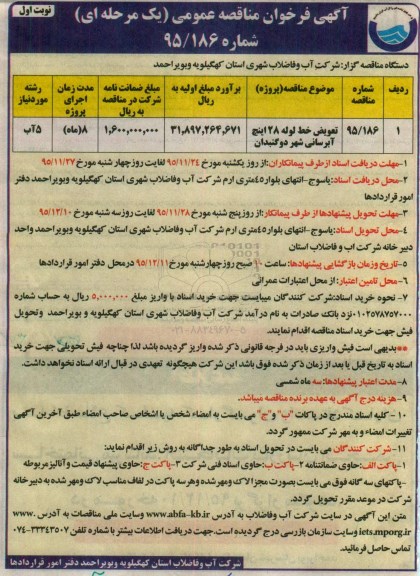 نوبت اول
آگهی فرخوان مناقصه عمومی (یک مرحله ای)
شماره ۹۵/۱۸۶
دستگاه مناقصه گزار: شرکت آب وفاضلاب شهری استان کهگیلویه وبویراحمد
ردیف شماره مناقصه موضوع مناقصه(پروژه) برآورد مبلغ اولیه به ریال مبلغ ضمانت نامه شرکت در مناقصه به ریال مدت زمان اجرای پروژه رشته موردنیاز
۱ ۹۵/۱۸۶ تعویض خط لوله ۲۸ اینچ آبرسانی شهر دوگنبدان ۳۱,۸۹۷,۲۶۴,۶۷۱ ۱,۶۰۰,۰۰۰,۰۰۰ ۸(ماه) ۵آب
۱-مهلت دریافت اسناد ازطرف پیمانکاران:از روز یکشنبه مورخ ۹۵/۱۱/۲۴ لغایت روزچهار شنبه مورخ ۹۵/۱۱/۲۷
۲-محل دریافت اسناد: یاسوج-انتهای بلوار۴۵متری ارم شرکت آب وفاضلاب شهری استان کهگیلویه وبویراحمد دفتر امور قراردادها
۳-مهلت تحویل پیشنهادها از طرف پیمانکار:از روزپنج شنبه مورخ ۹۵/۱۱/۲۸ لغایت روزسه شنبه مورخ ۹۵/۱۲/۱۰
۴-محل تحویل اسناد:یاسوج-انتهای بلوار۴۵متری ارم شرکت آب وفاضلاب شهری استان کهگیلویه وبویراحمد واحد
دبیر خانه شرکت اب و فاضلاب استان
۵-تاریخ وزمان بازگشایی پیشنهادها: ساعت ۱۰ صبح روزچهارشنبه مورخ۹۵/۱۲/۱۱ درمحل دفتر امور قراردادها
۶-محل تامین اعتبار: از محل اعتبارات عمرانی
۷- نحوه خرید اسناد:شرکت کنندگان میبایست جهت خرید اسناد با واریز مبلغ ۵,۰۰۰,۰۰۰ ریال به حساب شماره
۰۱۰۲۵۷۸۵۷۰۰۰نزد بانک صادرات به نام درآمد شرکت آب وفاضلاب شهری استان کهگیلویه و بویراحمد وتحویل
فیش جهت خرید اسناد مناقصه اقدام نمایند.
**بدیهی است فیش واریزی باید در فرجه قانونی ذکر شده واریز گردیده باشد لذا چناچه فیش تحویلی جهت خرید
اسناد به تاریخ قبل یا بعد از زمان ذکر شده فوق باشد این شرکت هیچگونه تعهدی در قبال ارائه اسناد نخواهد داشت.
۸-مدت اعتبار پیشنهادها: سه ماه شمسی
۹-هزینه درج آگهی به عهده برنده مناقصه میباشد.
۱۰- کلیه اسناد مندرج در پاکات "ب" و"ج" می بایست به امضاء شخص یا اشخاص صاحب امضاء طبق آخرین آگهی
تغییرات امضاء و به مهر شرکت ممهور گردد.
۱۱-شرکت کنندگان می بایست در تحویل اسناد به طور جداگانه به روش زیر اقدام نماید:
۱-پاکت الف:حاوی ضمانتنامه ۲-پاکت ب:حاوی اسناد فنی شرکت ۳-پاکت ج:حاوی پیشنهاد قیمت و آنالیز مربوطه
-پاکتهای سه گانه فوق می بایست بصورت مجزا لاک ومهرشده وهرسه پاکت در لفاف مناسب لاک و مهر شده به دبیر خانه
شرکت در موعد مقرر تحویل گردد.
متن این آگهی در سایت شرکت آب وفاضلاب به آدرس www.abfa-kb.ir وسایت ملی مناقصات به آدرس www.
iets.mporg.ir وسایت سازمان بازرسی درج گردیده است.جهت دریافت اطلاعات بیشتر با شماره تلفن ۳۳۳۴۳۵۰۷-۰۷۴
تماس حاصل فرمائید.
شرکت آب وفاضلاب شهری استان کهگیلویه وبویراحمد دفتر امور قراردادها